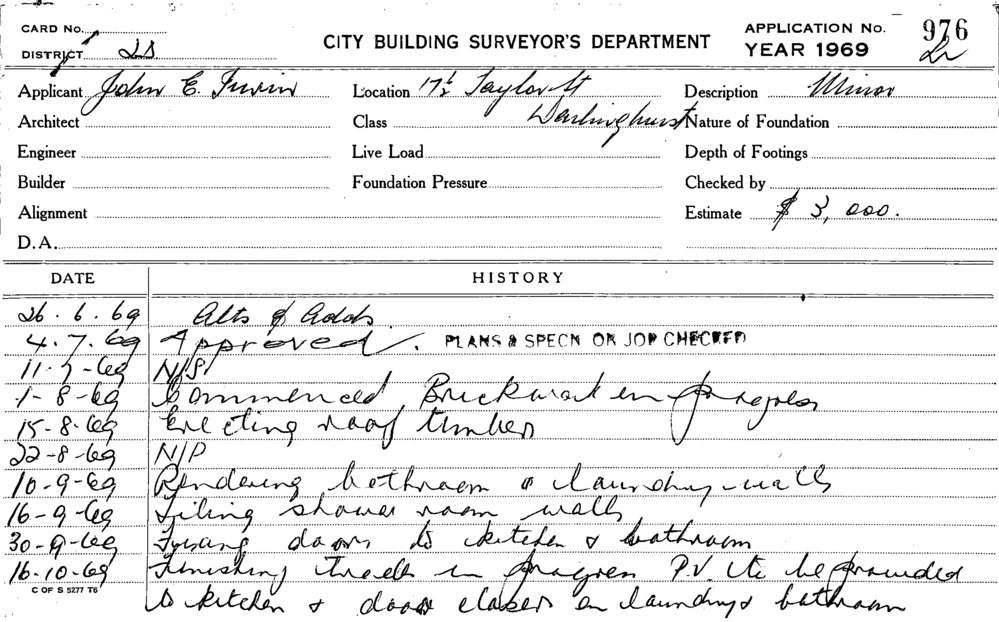 CARD No.
DISTRICT
CITY BUILDING SURVEYOR'S DEPARTMENT
APPLICATION No. 976
YEAR 1969
Applicant John E. Irwin
Location 17½ Taylor St Darlinghurst
Description Minor
Architect
Class
Nature of Foundation
Engineer
Live Load
Depth of Footings
Builder
Foundation Pressure
Checked by
Alignment
Estimate $ 3,000.
D.A.
DATE HISTORY
26.6.69 Alts & Adds
4.7.69 Approved. PLANS & SPECN ON JOB CHECKED
11-7-69 N/S
1-8-69 Commenced Brickwork in progress
15-8-69 Erecting roof timbers
22-8-69 N/P
10-9-69 Rendering bathroom & laundry walls
16-9-69 Tiling shower room walls
30-9-69 doors to kitchen & bathroom
16-10-69 Finishing trades in progress P.V. to be provided
C OF S 5277 T6
to kitchen & door closers on laundry & bathroom